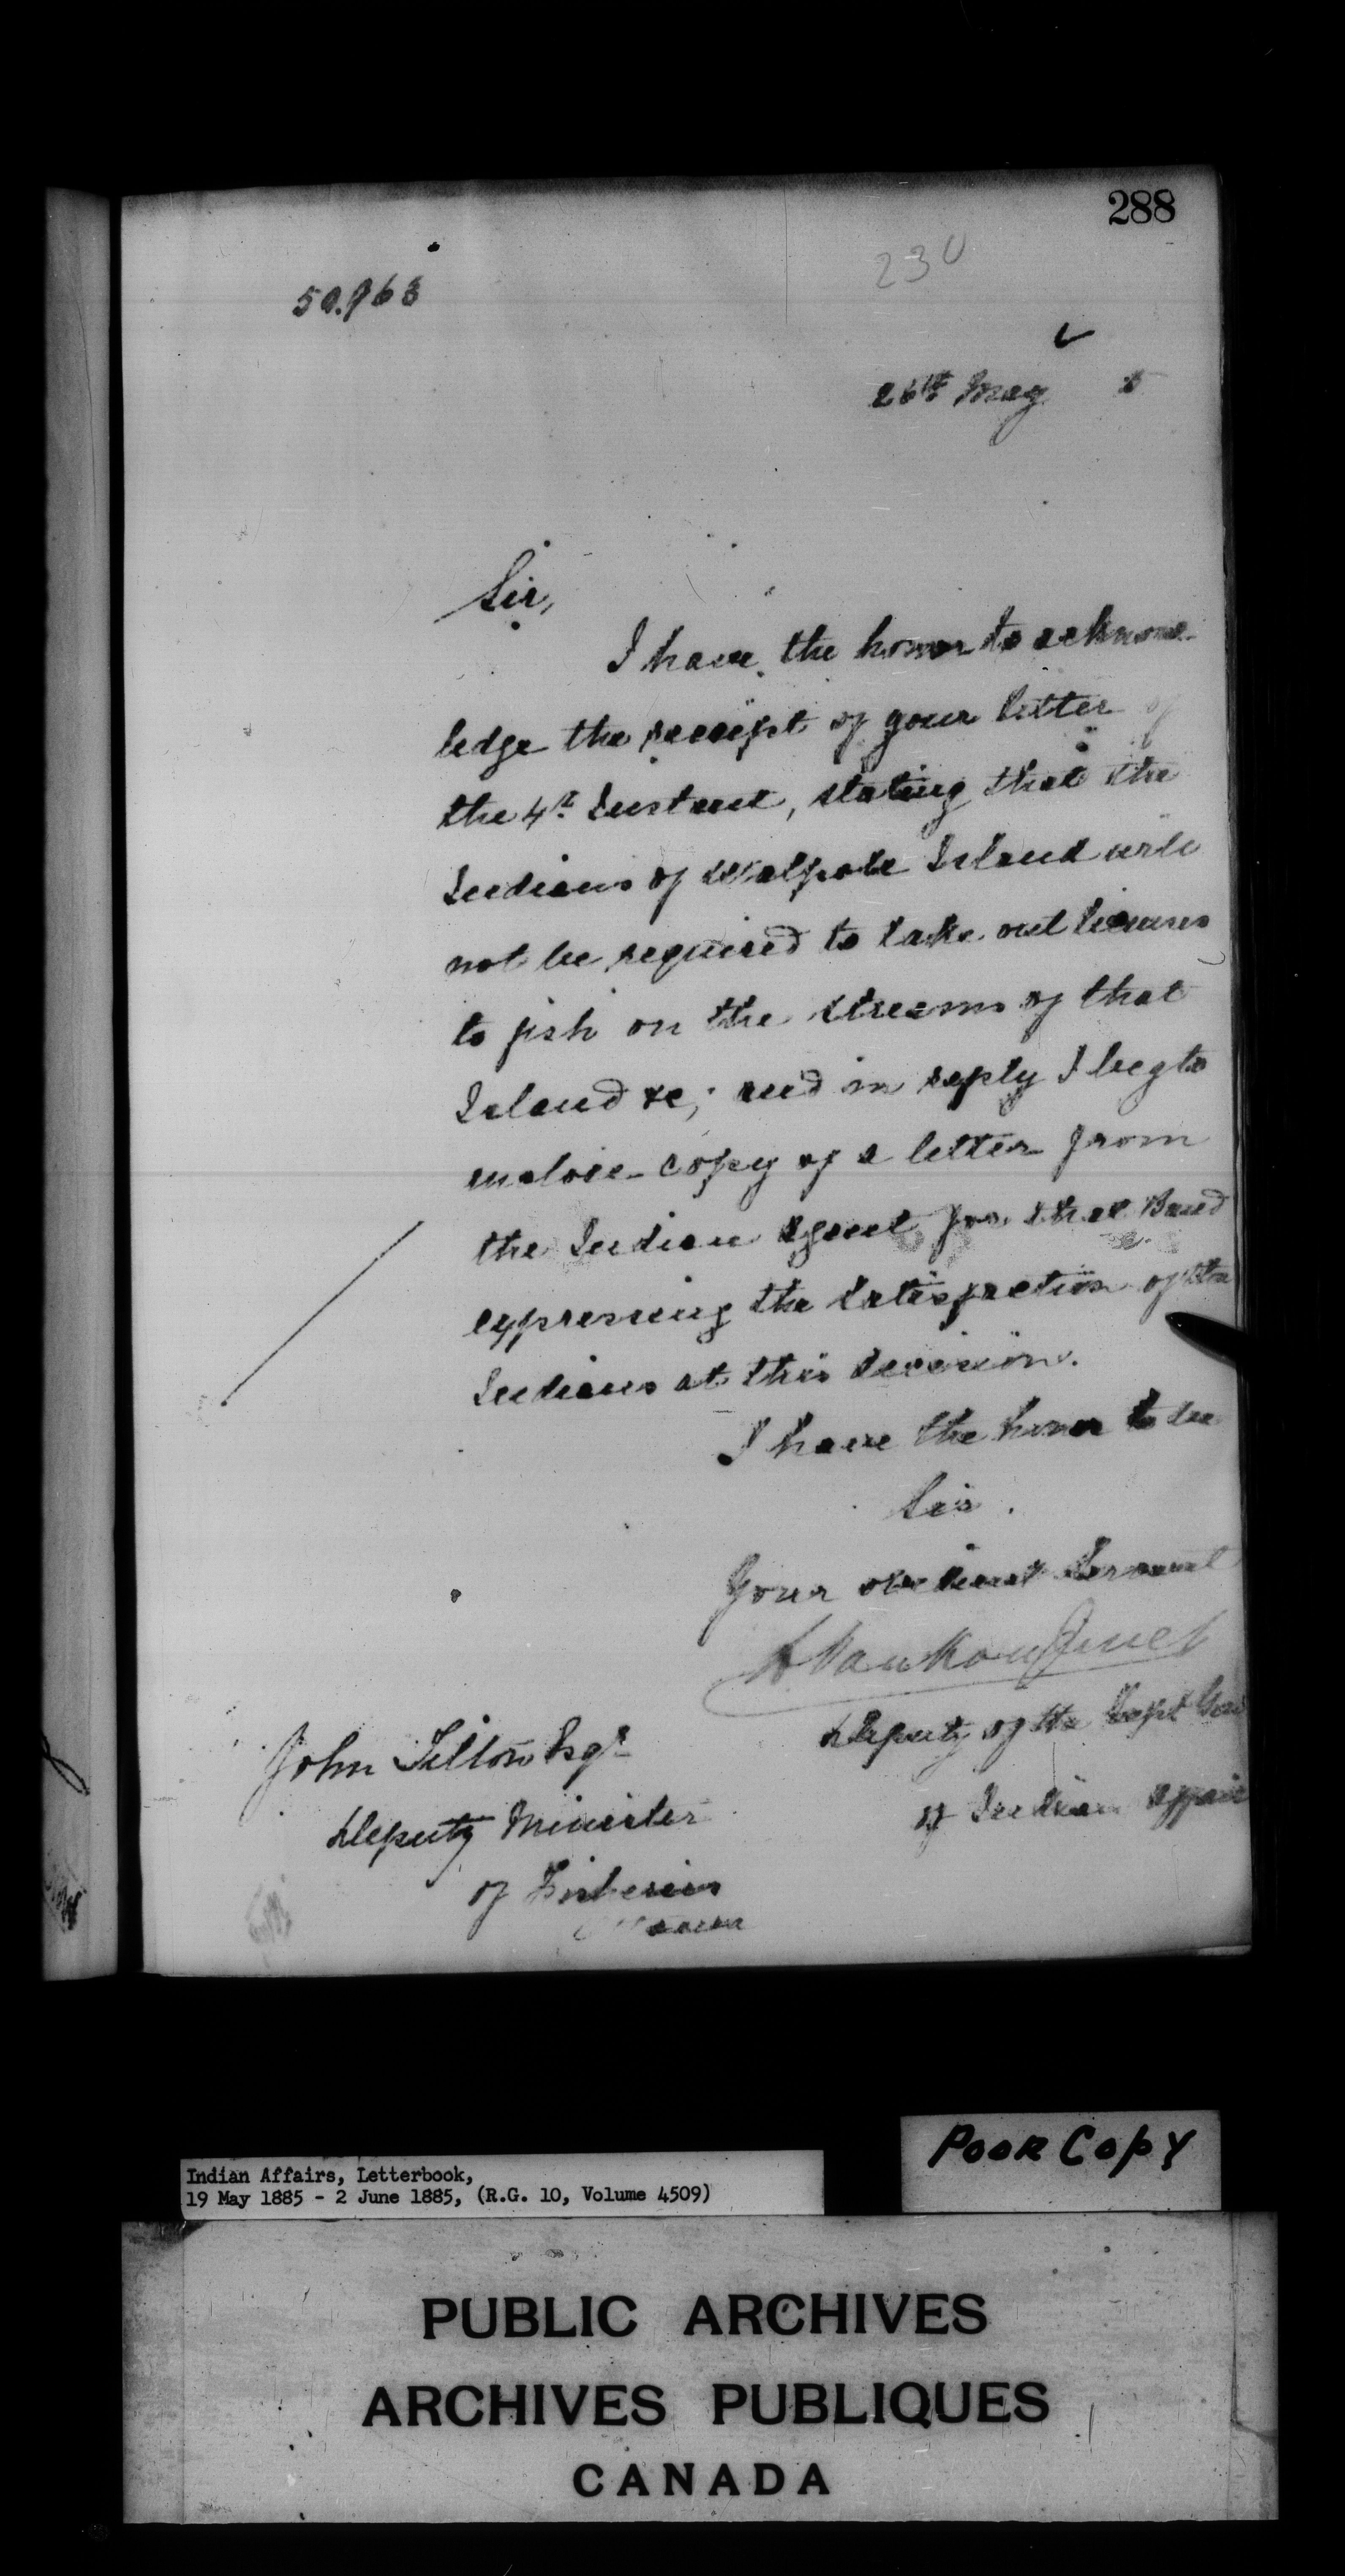 288
230
50.963
26th May 5
Sir,
I have the honor to acknow-
ledge the receipt of your letter of
the 4th Instant, stating that the
Indians of Walpole Island will
not be required to take out licenses
to fish on the streams of that
Island &c; and in reply I beg to
enclose copy of a letter from
the Indian Agent for that Band
expressing the satisfaction of the
Indians at this decision.
I have the honor to be
Sir.
Your obedient Servant
L Vankoughnet
Deputy of the Supt Genl
of Indian Affairs
John Tilton Esqr
Deputy Minister
of Fisheries
Ottawa
POOR COPY
Indian Affairs, Letterbook,
19 May 1885 - 2 June 1885, (R.G. 10, Volume 4509)
PUBLIC ARCHIVES
ARCHIVES PUBLIQUES
CANADA